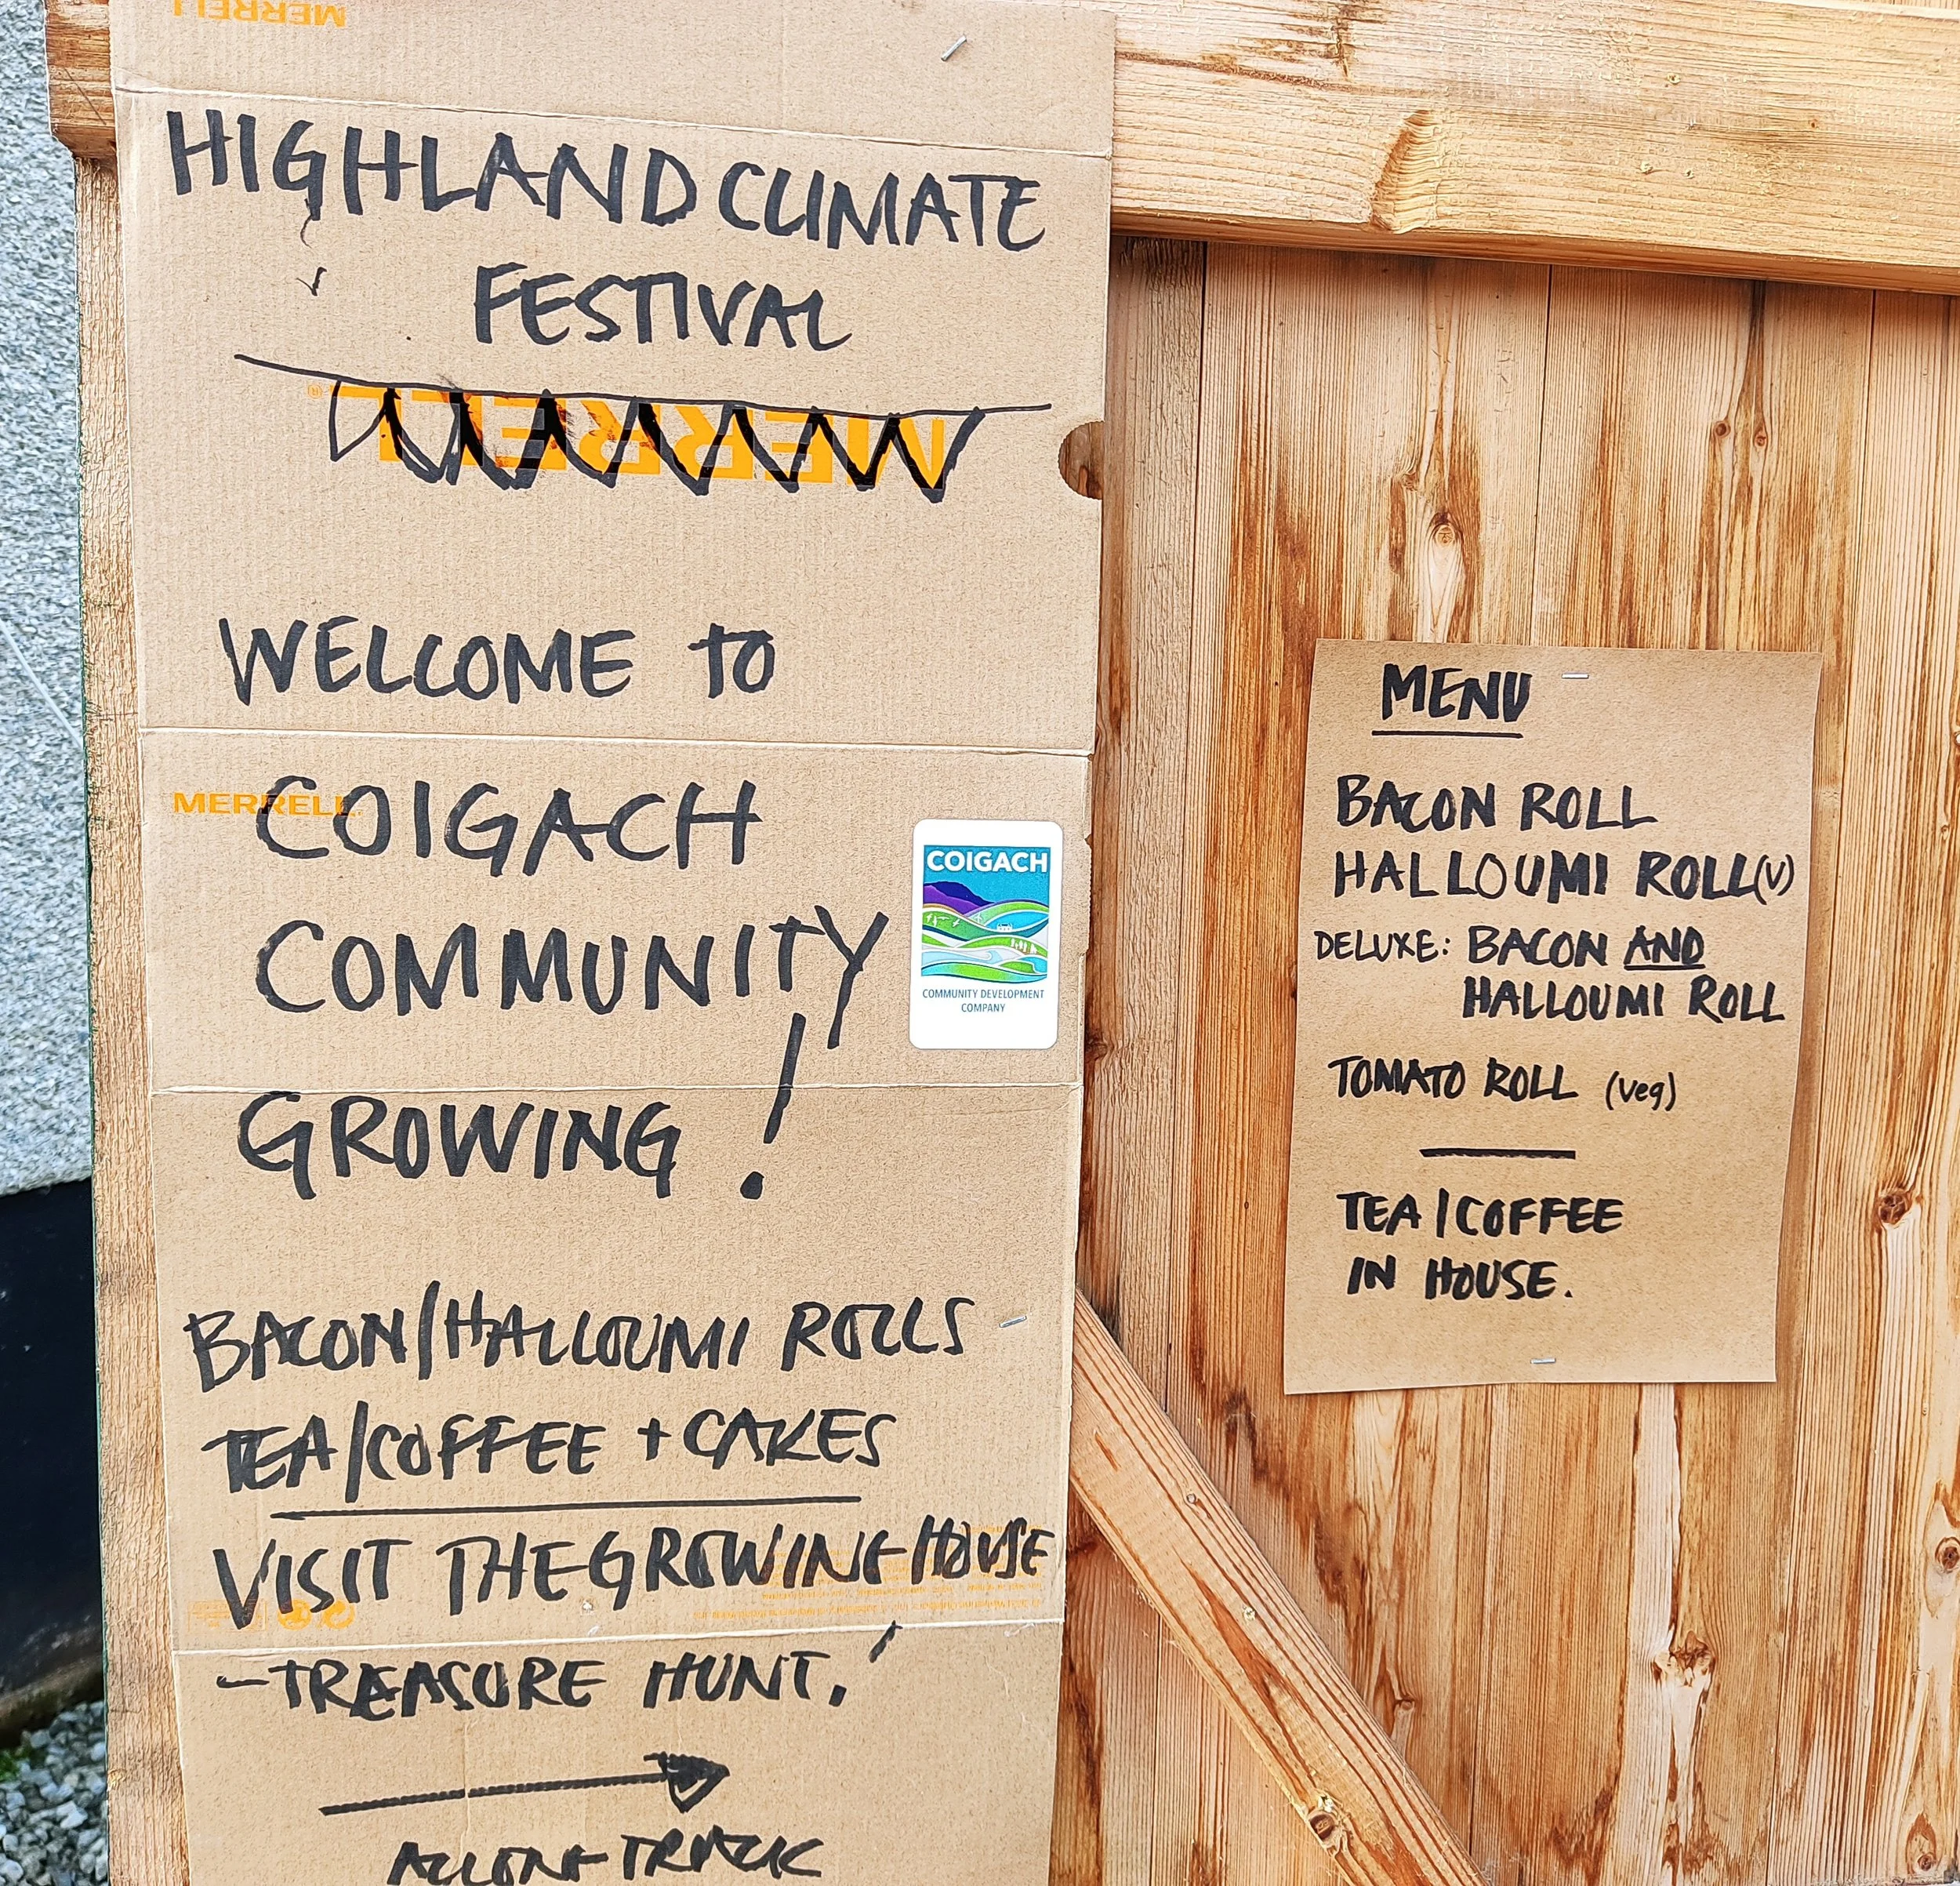 MERRELL
HIGHLAND CLIMATE
FESTIVAL
MERRELL®
WELCOME to
MERRELL
COIGACH
COMMUNITY
GROWING!
COIGACH
COMMUNITY DEVELOPMENT
COMPANY
BACON/HALLOUMI ROLLS
TEA/COFFEE + CAKES
VISIT THE GROWING HOUSE
- TREASURE HUNT.!
ALONG TRACK
MENU
BACON ROLL
HALLOUMI ROLL (V)
DELUXE: BACON AND
HALLOUMI ROLL
TOMATO ROLL (veg)
TEA/COFFEE
IN HOUSE.